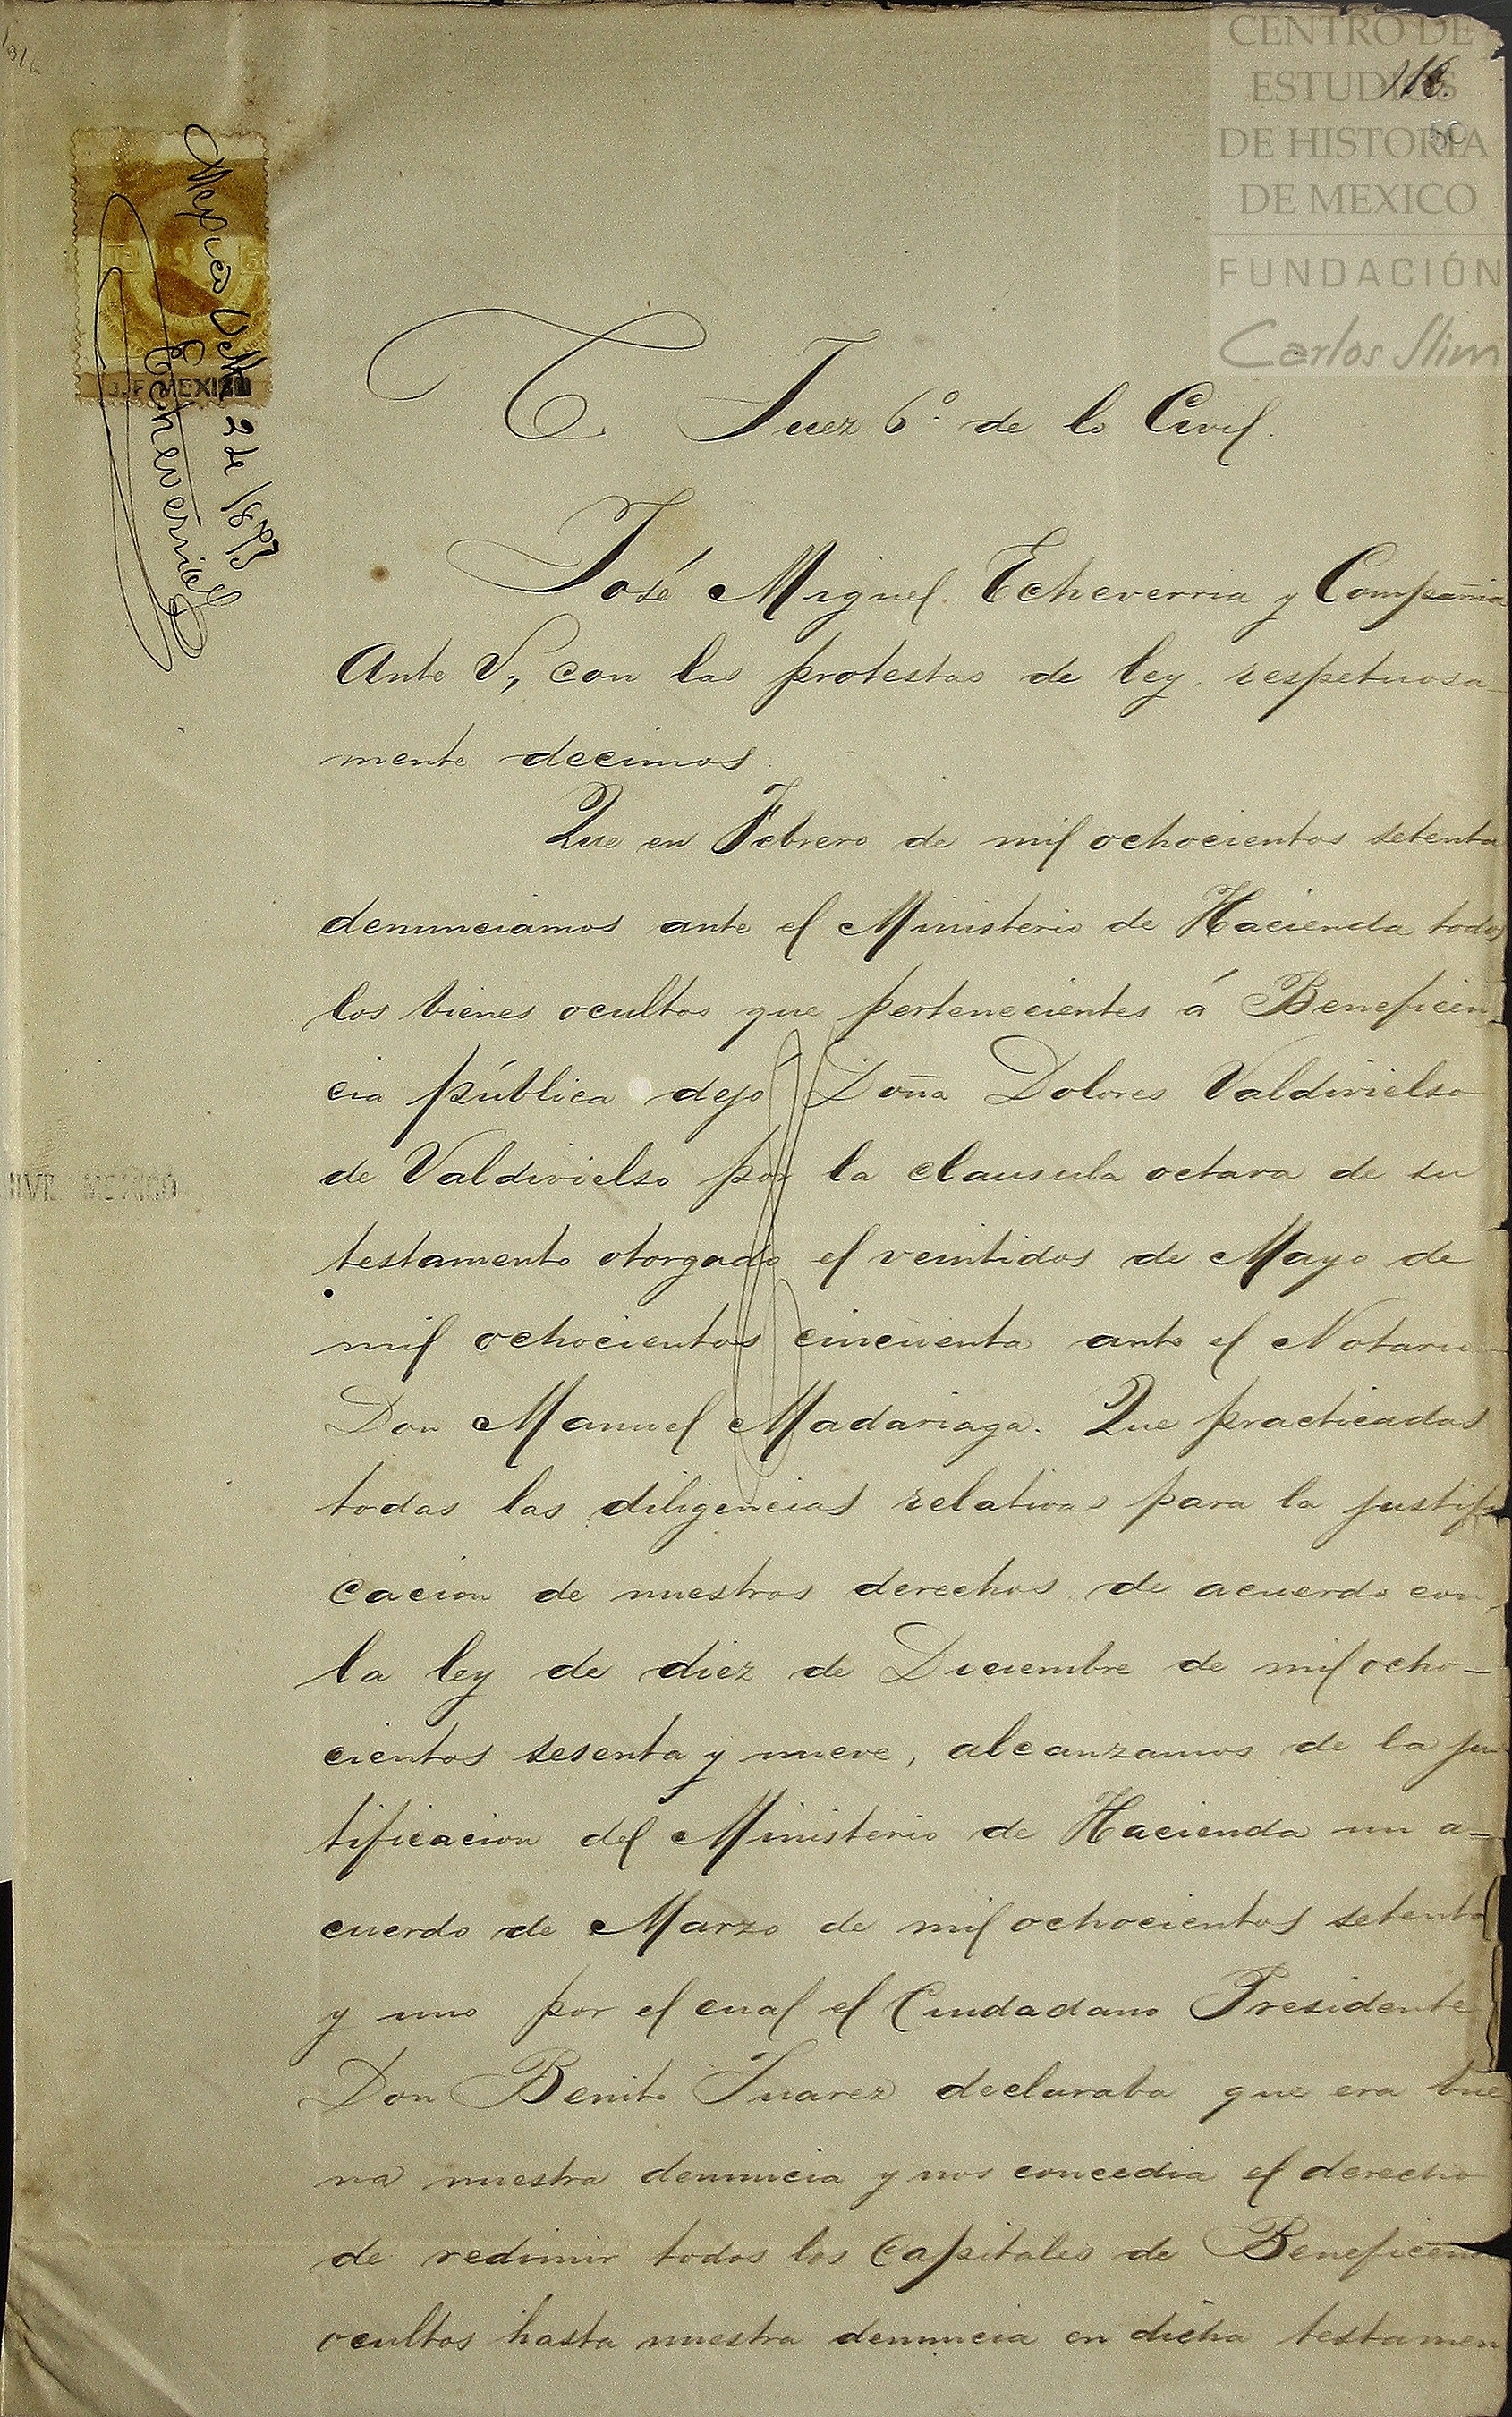 CENTRO DE
ESTUDIOS
DE HISTORIA
DE MEXICO
FUNDACIÓN
Carlos Slim
116.
50
Mexico 2 de 1873
Echeverria
D.F. MEXICO
C. Juez 6º de lo Civil.
José Miguel Echeverria y Compañia
Ante V, con las protestas de ley respetuosa-
mente decimos.
Que en Febrero de mil ochocientos setenta
denunciamos ante el Ministerio de Hacienda todos
los bienes ocultos que pertenecientes á Beneficen-
cia pública dejo Doña Dolores Valdivielso
de Valdivielso por la clausula octava de su
MEXICO
testamento otorgado el veintidos de Mayo de
mil ochocientos cincuenta ante el Notario
Don Manuel Madariaga. Que practicadas
todas las diligencias relativas para la justifi
cacion de nuestros derechos de acuerdo con
la ley de diez de Diciembre de mil ocho-
cientos sesenta y nueve, alcanzamos de la jus
tificacion del Ministerio de Hacienda un a-
cuerdo de Marzo de mil ochocientos setenta
y uno por el cual el Ciudadano Presidente
Don Benito Juarez declaraba que era bue
na nuestra denuncia y nos concedia el derecho
de redimir todos los Capitales de Beneficencia
ocultos hasta nuestra denuncia en dicha testamen